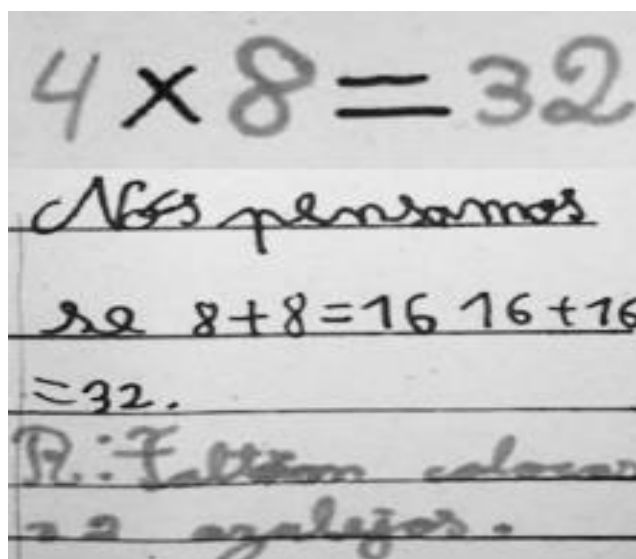 4 × 8 = 32
Nós pensamos
se 8+8=16 16+16
=32.
R.: Faltam colocar
azalejos.